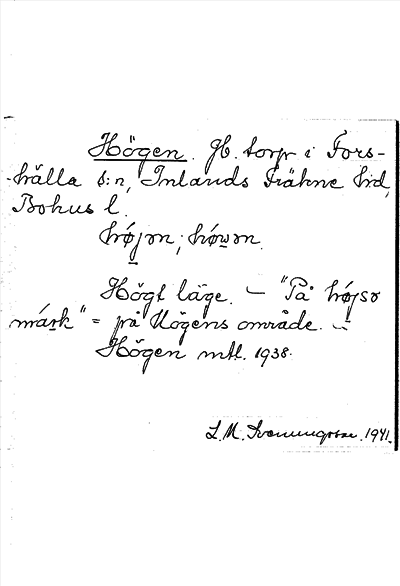 Högen. Gl. torp i Fors-
hälla s:n, Inlands Fräkne hd,
Bohus l.
hǿjən, hǿwən.
Högt läge. — "På hǿjsə
márk" = på Högens område. —
Högen mtl. 1938.
L. M. Svenungsson. 1941.